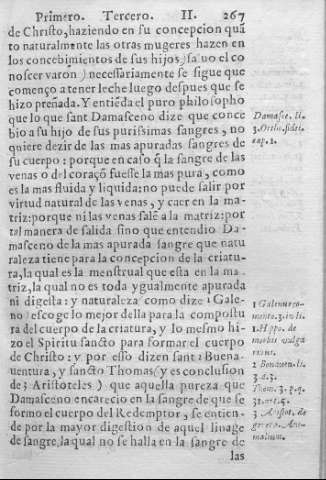 Primero. Tercero. II. 267
de Christo, haziendo en su concepcion quã
to naturalmente las otras mugeres hazen en
los concebimientos de sus hijos (saluo el co
noscer varon) necessariamente se sigue que
començo a tener leche luego despues que se
hizo preñada. Y entiẽda el puro philosopho
que lo que sant Damasceno dize que conce
bio a su hijo de sus purissimas sangres, no
quiere dezir de las mas apuradas sangres de
su cuerpo: porque en caso q̃ la sangre de las
venas o del coraçõ fuesse la mas pura, como
es la mas fluida y liquida: no puede salir por
virtud natural de las venas, y caer en la ma
triz: porque ni las venas salẽ a la matriz: por
tal manera de salida sino que entendio Da-
masceno de la mas apurada sangre que natu
raleza tiene para la concepcion de la criatu-
ra, la qual es la menstrual que esta en la ma-
triz, la qual no es toda ygualmente apurada
ni digesta: y naturaleza como dize 1 Gale-
no escoge lo mejor della para la compostu
ra del cuerpo de la criatura, y lo mesmo hi-
zo el Spiritu sancto para formar el cuerpo
de Christo: y por esso dizen sant 2 Buena-
uentura, y sancto Thomas (y es conclusion
de 3 Aristoteles) que aquella pureza que
Damasceno encarecio en la sangre de que se
formo el cuerpo del Redemptor, se entien-
de por la mayor digestion de aquel linage
de sangre, la qual no se halla en la sangre de
las
Damasce. li.
3. Ortho. fidei.
cap. 2.
1 Galenus co-
mento. 3. in li.
1. Hppo. de
morbis vulga
ribus.
2 Bonauen. li.
3. d. 3.
Thom. 3. p. q.
31. art. 5.
3 Aristot. de
genera. Ani-
malium.